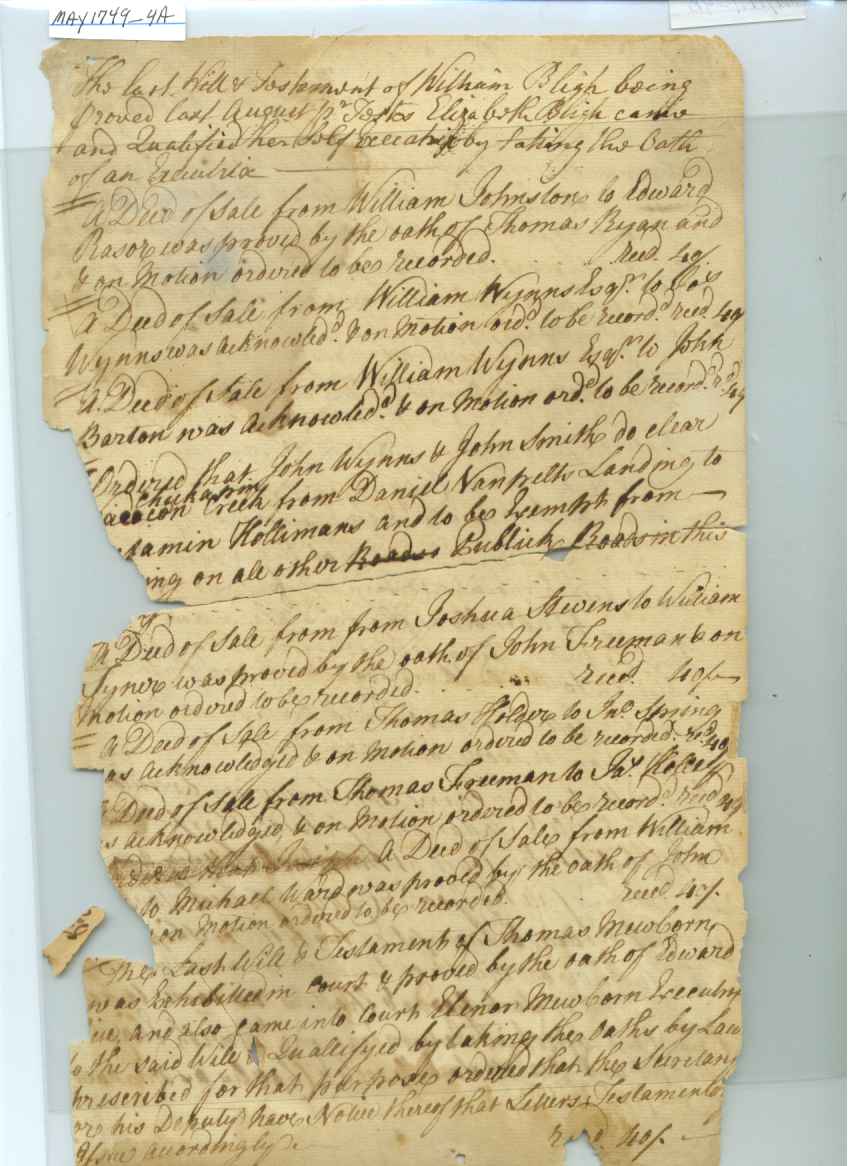 MAY 1749-4A
The last Will & Testament of William Bligh being
proved last August pr Testes Elizabeth Bligh came
and Qualified her self by taking the Oath
of an Executrix
A Deed of Sale from William Johnston to Edward
Rasor was proved by the oath of Thomas Ryan and
& on Motion ordered to be recorded. recd.
A Deed of Sale from William Wynns Esqr. to
Wynns was acknowled'd. & on Motion ord'd. to be record'd recd
A Deed of Sale from William Wynns Esqr. to John
Barton was acknowled'd. & on Motion ord'd to be record'd
Ordered that John Wynns & John Smith do clear
Creek from Daniel Vanpelts Landing to
jamin Hollimans and to be Exempt from
ing on all other Roads Publick Roads in this
y.
A Deed of Sale from from Joshua Stevens to William
Tyner was proved by the oath of John Freeman & on
Motion ordered to be recorded. recd.
A Deed of Sale from Thomas Holder to Jno.
as acknowledged & on Motion ordered to be recorded.
Deed of Sale from Thomas Freeman to Jas.
s acknowledged & on Motion ordered to be record'd recd
A Deed of Sale from William
to Michael Ward was proved by the oath of John
on Motion ordered to be recorded. recd.
The Last Will & Testament of Thomas Mewborn
was Exhibitted in court & proved by the oath of Edward
and also came into Court Elenor Mewborn Executry
to the said Will & Quallifyed by taking the oaths by Law
prescribed for that purpose ordered that the Secretary
or his Deputy have Notice thereof that Letters Testamentory
Issue accordingly